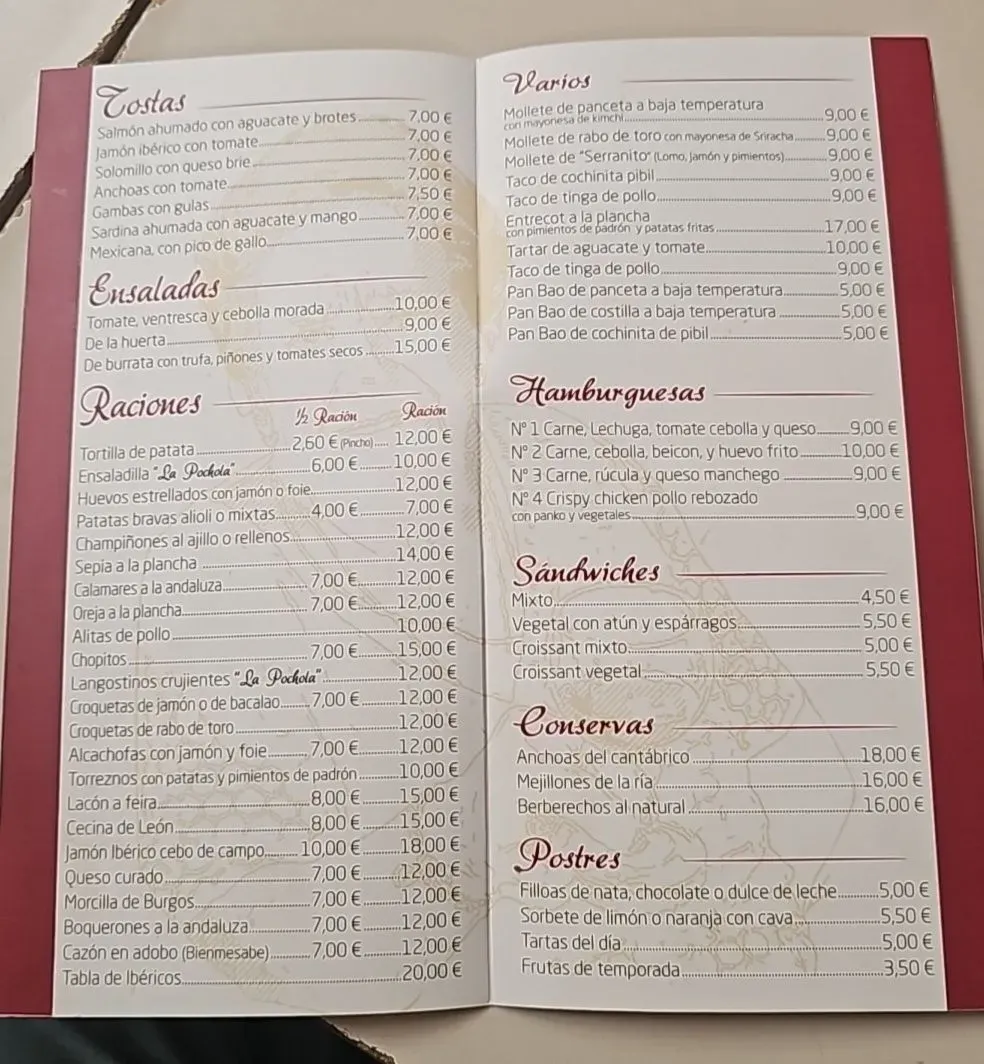 Tostas
Salmón ahumado con aguacate y brotes 7,00 €
Jamón ibérico con tomate 7,00 €
Solomillo con queso brie 7,00 €
Anchoas con tomate 7,00 €
Gambas con gulas 7,50 €
Sardina ahumada con aguacate y mango 7,00 €
Mexicana, con pico de gallo 7,00 €
Ensaladas
Tomate, ventresca y cebolla morada 10,00 €
De la huerta 9,00 €
De burrata con trufa, piñones y tomates secos 15,00 €
Raciones ½ Ración Ración
Tortilla de patata 2,60 € (Pincho) 12,00 €
Ensaladilla "La Pochola" 6,00 € 10,00 €
Huevos estrellados con jamón o foie 12,00 €
Patatas bravas alioli o mixtas 4,00 € 7,00 €
Champiñones al ajillo o rellenos 12,00 €
Sepia a la plancha 14,00 €
Calamares a la andaluza 7,00 € 12,00 €
Oreja a la plancha 7,00 € 12,00 €
Alitas de pollo 10,00 €
Chopitos 7,00 € 15,00 €
Langostinos crujientes "La Pochola" 12,00 €
Croquetas de jamón o de bacalao 7,00 € 12,00 €
Croquetas de rabo de toro 12,00 €
Alcachofas con jamón y foie 7,00 € 12,00 €
Torreznos con patatas y pimientos de padrón 10,00 €
Lacón a feira 8,00 € 15,00 €
Cecina de León 8,00 € 15,00 €
Jamón Ibérico cebo de campo 10,00 € 18,00 €
Queso curado 7,00 € 12,00 €
Morcilla de Burgos 7,00 € 12,00 €
Boquerones a la andaluza 7,00 € 12,00 €
Cazón en adobo (Bienmesabe) 7,00 € 12,00 €
Tabla de Ibéricos 20,00 €
Varios
Mollete de panceta a baja temperatura
con mayonesa de kimchi 9,00 €
Mollete de rabo de toro con mayonesa de Sriracha 9,00 €
Mollete de "Serranito" (Lomo, Jamón y pimientos) 9,00 €
Taco de cochinita pibil 9,00 €
Taco de tinga de pollo 9,00 €
Entrecot a la plancha
con pimientos de padrón y patatas fritas 17,00 €
Tartar de aguacate y tomate 10,00 €
Taco de tinga de pollo 9,00 €
Pan Bao de panceta a baja temperatura 5,00 €
Pan Bao de costilla a baja temperatura 5,00 €
Pan Bao de cochinita de pibil 5,00 €
Hamburguesas
Nº 1 Carne, Lechuga, tomate cebolla y queso 9,00 €
Nº 2 Carne, cebolla, beicon, y huevo frito 10,00 €
Nº 3 Carne, rúcula y queso manchego 9,00 €
Nº 4 Crispy chicken pollo rebozado
con panko y vegetales 9,00 €
Sándwiches
Mixto 4,50 €
Vegetal con atún y espárragos 5,50 €
Croissant mixto 5,00 €
Croissant vegetal 5,50 €
Conservas
Anchoas del cantábrico 18,00 €
Mejillones de la ría 16,00 €
Berberechos al natural 16,00 €
Postres
Filloas de nata, chocolate o dulce de leche 5,00 €
Sorbete de limón o naranja con cava 5,50 €
Tartas del día 5,00 €
Frutas de temporada 3,50 €